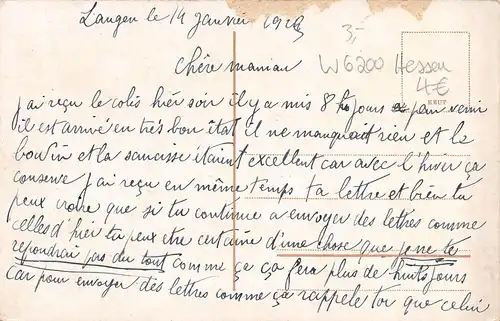 Langen le 14 janvier 1923
3-
W6200 Hessen
4€
chère maman
j'ai reçu le colis hier soir il y a mis 8 jours pour venir
il est arrivé en très bon état il ne manquait rien et le
boudin et la saucisse étaient excellent car avec l'hiver ça
conserve j'ai reçu en même temps ta lettre et bien tu
peux croire que si tu continue a envoyer des lettres comme
celles d'hier tu peux etre certaine d'une chose que je ne te
repondrai pas du tout comme ce ça fera plus de huit jours
car pour envoyer des lettres comme ça rappele toi que celui